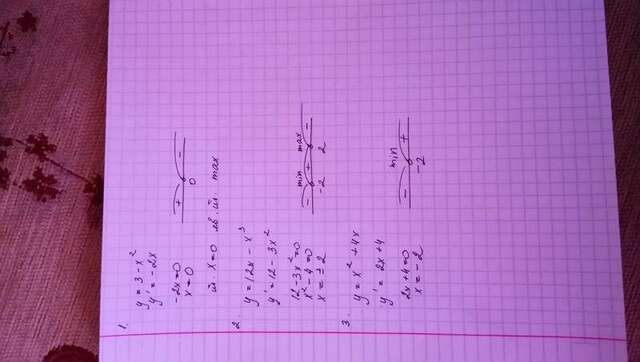 1.
y = 3 - x²
y' = -2x
-2x = 0
x = 0
+ -
0
т. x=0 яв. т. max
2.
y = 12x - x³
y' = 12 - 3x²
12 - 3x² = 0
x² - 4 = 0
x = ± 2
min max
- + -
-2 2
3.
y = x² + 4x
y' = 2x + 4
2x + 4 = 0
x = -2
min
- +
-2